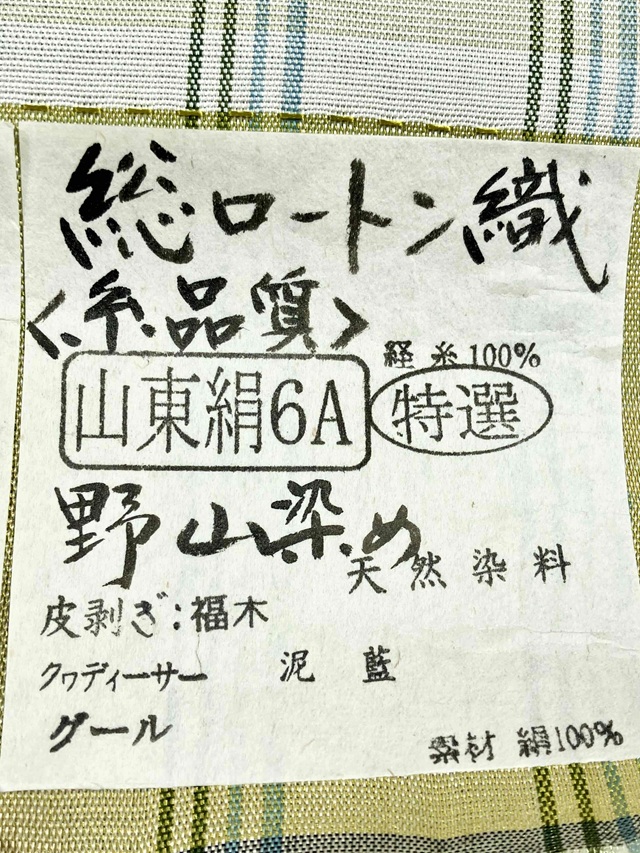 総ロートン織
〈糸品質〉
経糸100%
山東絹6A 特選
野山染め
天然染料
皮剥ぎ:福木
クヮディーサー 泥藍
グール
素材 絹100%